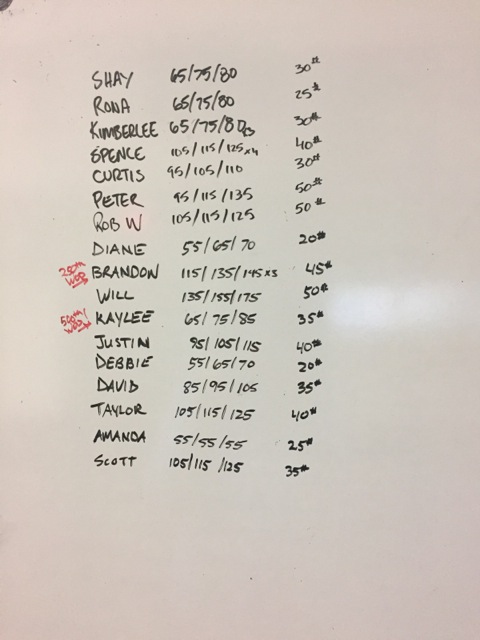 SHAY 65/75/80 30#
RONA 65/75/80 25#
KIMBERLEE 65/75/80 30#
SPENCE 105/115/125x4 40#
CURTIS 95/105/110 30#
PETER 95/115/135 50#
ROB W 105/115/125 50#
DIANE 55/65/70 20#
250th WOD BRANDON 115/135/145x3 45#
WILL 135/155/175 50#
500th WOD! KAYLEE 65/75/85 35#
JUSTIN 95/105/115 40#
DEBBIE 55/65/70 20#
DAVID 85/95/105 35#
TAYLOR 105/115/125 40#
AMANDA 55/55/55 25#
SCOTT 105/115/125 35#